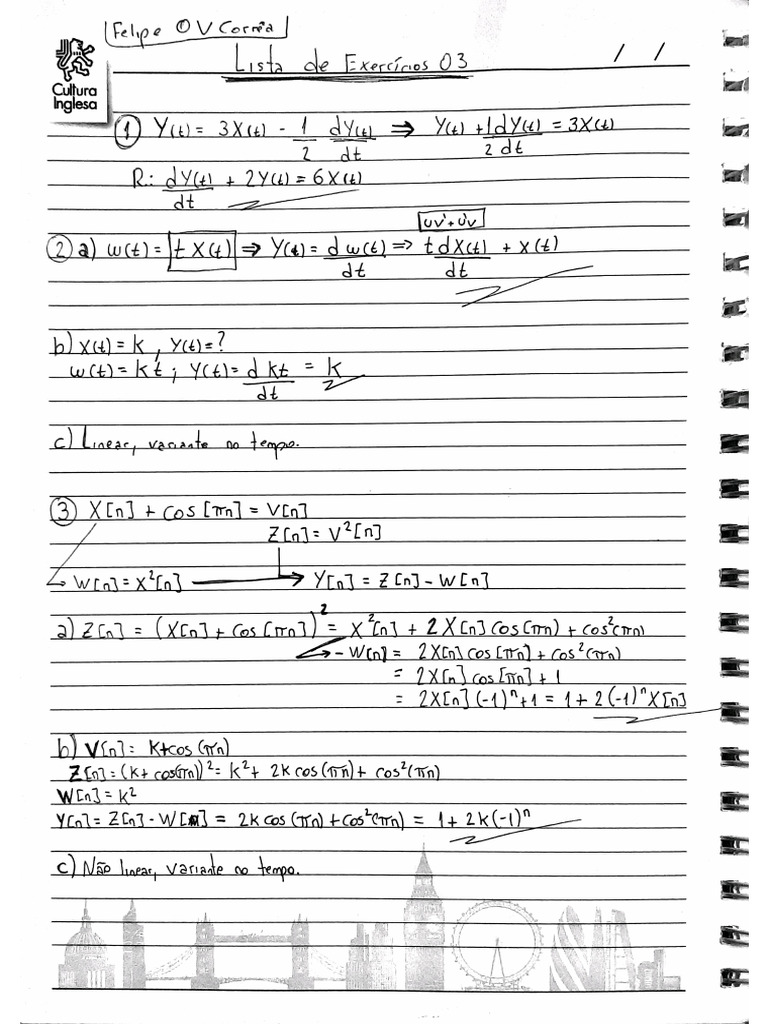 Felipe O V Corrêa
Lista de Exercícios 03 / /
Cultura
Inglesa
① Y(t) = 3X(t) - 1/2 dY(t)/dt ⇒ Y(t) + 1/2 dY(t)/dt = 3X(t)
R.: dY(t)/dt + 2Y(t) = 6X(t)
uv' + u'v
② a) w(t) = t X(t) ⇒ Y(t) = d w(t)/dt ⇒ t dX(t)/dt + x(t)
b) x(t) = k, Y(t) = ?
w(t) = kt; Y(t) = d kt/dt = k
c) Linear, variante no tempo.
③ X[n] + cos[πn] = V[n]
Z[n] = V²[n]
→ W[n] = X²[n] → Y[n] = Z[n] - W[n]
a) Z[n] = (X[n] + cos[πn])² = X²[n] + 2X[n] cos(πn) + cos²(πn)
→ - W[n] = 2X[n] cos[πn] + cos²(πn)
= 2X[n] cos[πn] + 1
= 2X[n] (-1)ⁿ + 1 = 1 + 2(-1)ⁿ X[n]
b) V[n] = k + cos(πn)
Z[n] = (k + cos(πn))² = k² + 2k cos(πn) + cos²(πn)
W[n] = k²
Y[n] = Z[n] - W[n] = 2k cos(πn) + cos²(πn) = 1 + 2k(-1)ⁿ
c) Não linear, variante no tempo.